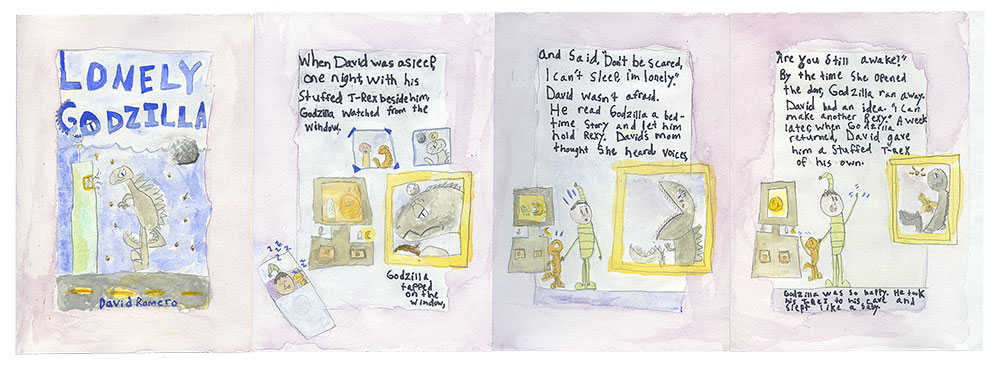 LONELY
GODZILLA
David Romero
When David was asleep
one night, with his
Stuffed T-Rex beside him,
Godzilla watched from the
window,
z z z z z
Godzilla
tapped
on the
window,
and said, "Don't be scared,
I can't sleep, i'm lonely."
David wasn't afraid.
He read Godzilla a bed-
time story and let him
hold Rexy. David's mom
thought she heard voices
"Are you still awake?"
By the time she opened
the door, Godzilla ran away.
David had an idea. "I can
make another Rexy." A week
later, when Godzilla
returned, David gave
him a stuffed T-rex
of his own.
Godzilla was so happy. He took
his T-Rex to his cave and
slept like a baby.